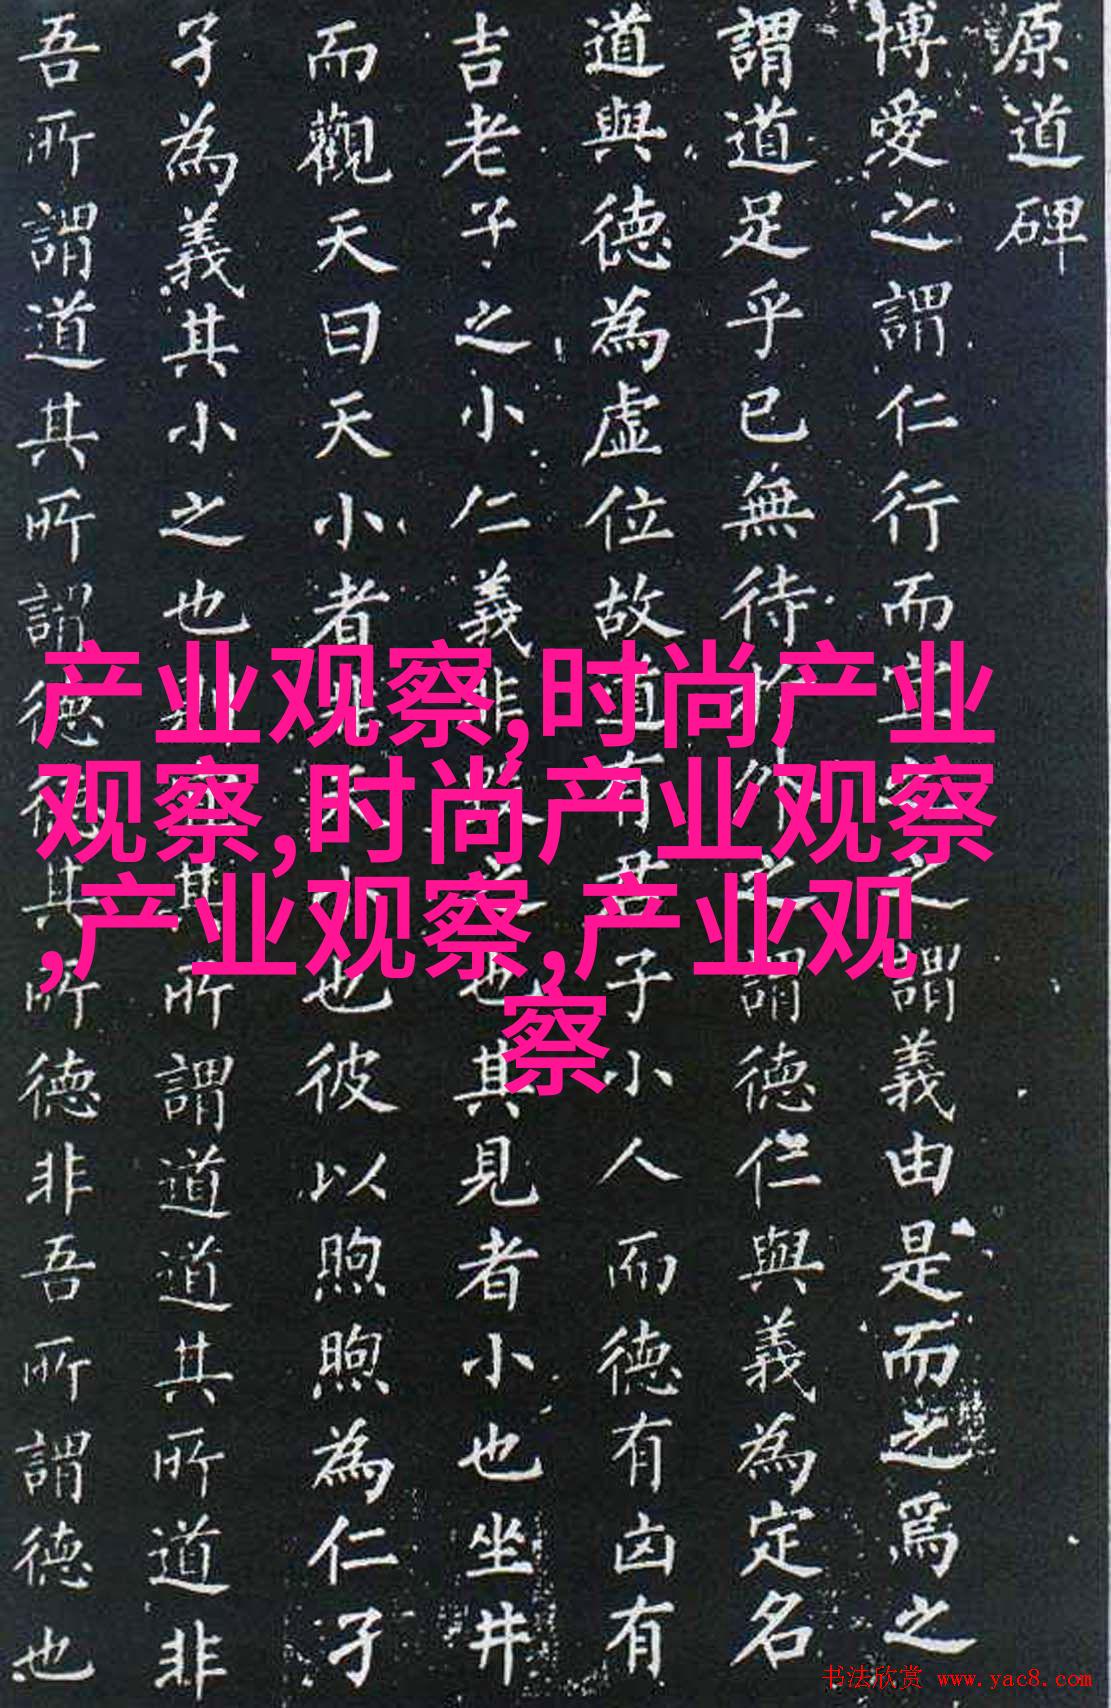 原道碑
博愛之謂仁行而宜之之謂義由是而之焉之
謂道足乎已無待於外之謂德仁與義為定名
道與德為虛位故道有君子小人而德有凶有
吉老子之小仁義非毀之也其見者小也坐井
而觀天曰天小者非天小也彼以煦煦為仁孑
孑為義其小之也則宜其所謂道道其所道非
吾所謂道其所謂德德其所德非吾所謂德也
产业观察,时尚产业
观察,时尚产业观察
,产业观察,产业观
察
书法欣赏 www.yac8.com